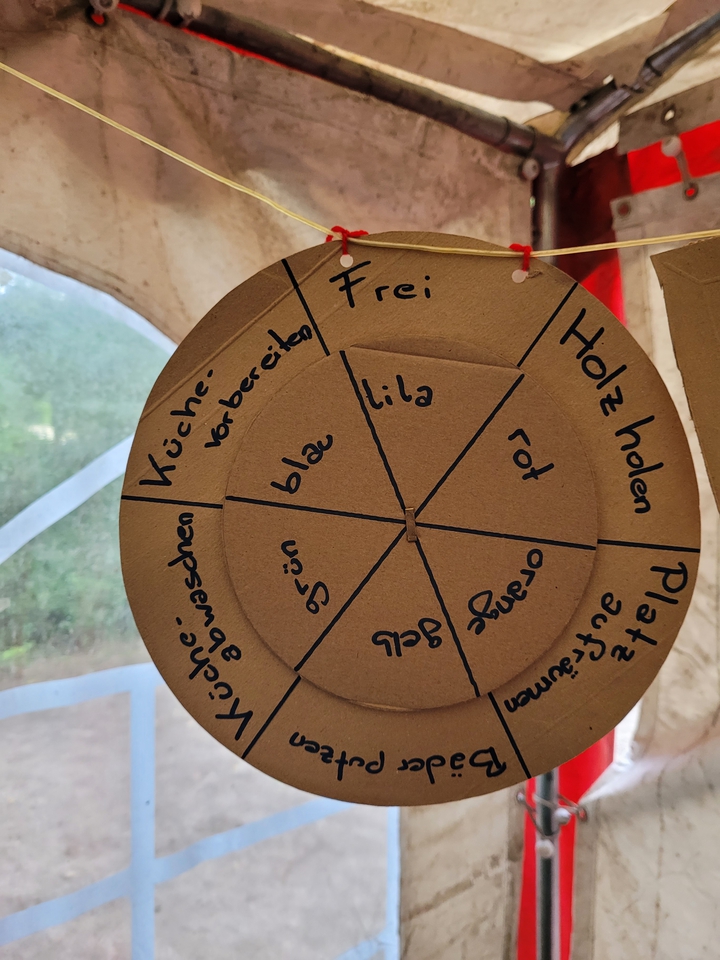 Frei
Holz holen
Platz
aufräumen
Bäder putzen
Küche-
abwaschen
Küche-
vorbereiten
lila
rot
orange
gelb
grün
blau